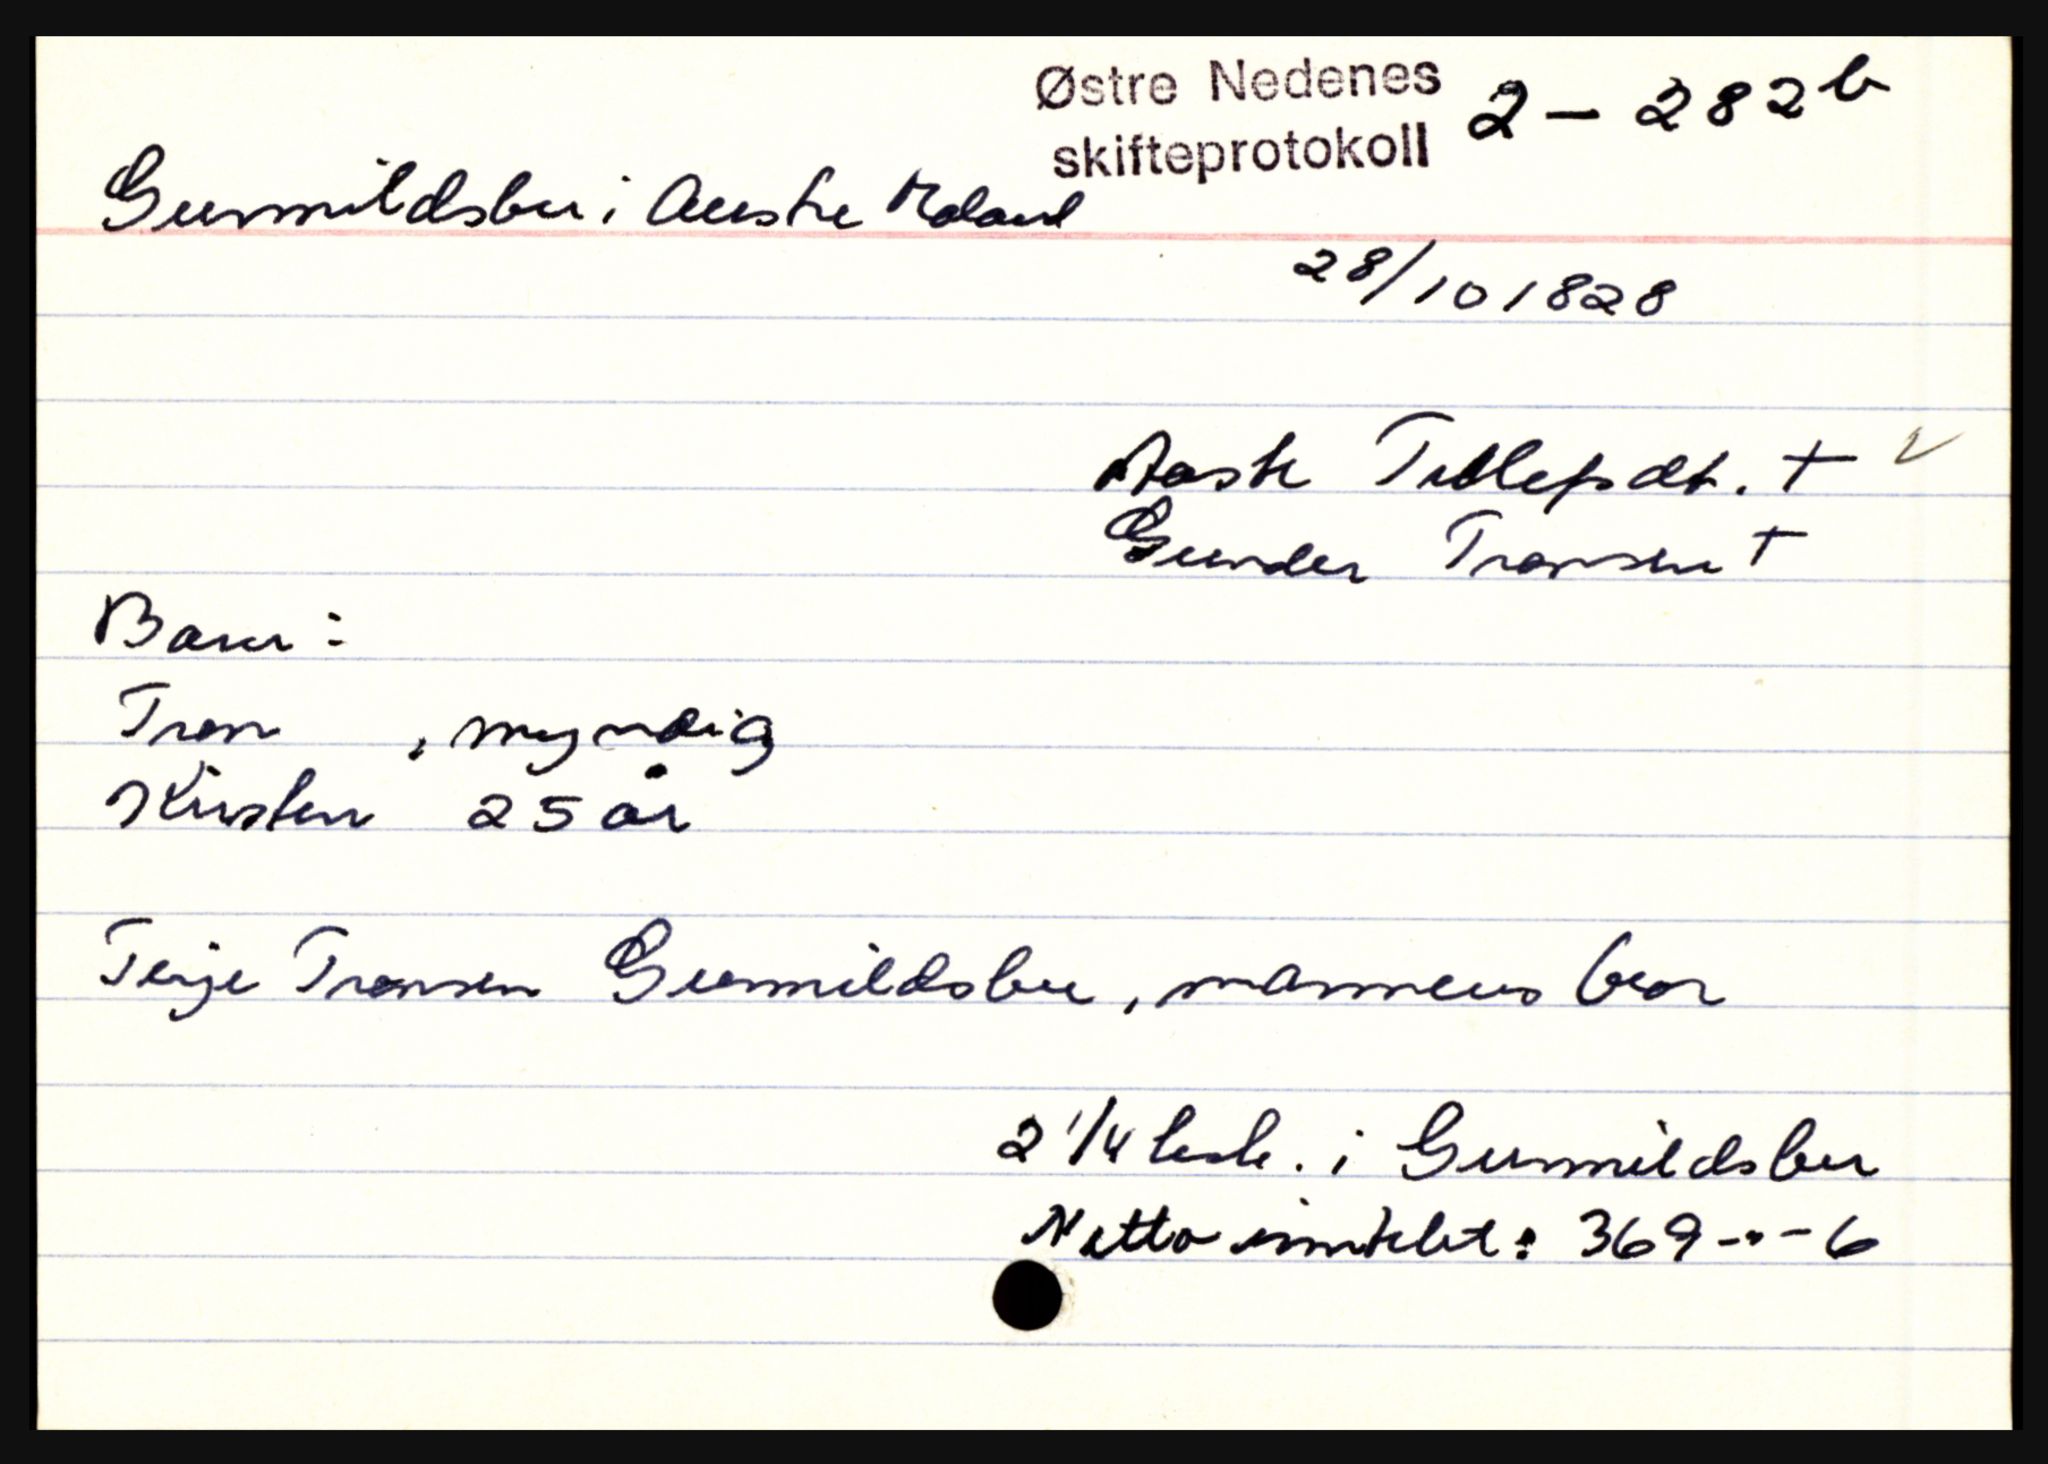 Østre Nedenes
skifteprotokoll 2 - 282 b
Gunnildsbu i Austre Moland
28/10 1828
Aaste Tellefsdt. +
Gunder Tronsen +
Barn :
Tron , myndig
Kirsten 25 år
Terje Tronsen Gunnildsbu, mannens bror
2 1/4 i Gunnildsbu
Netto : 369-"-6